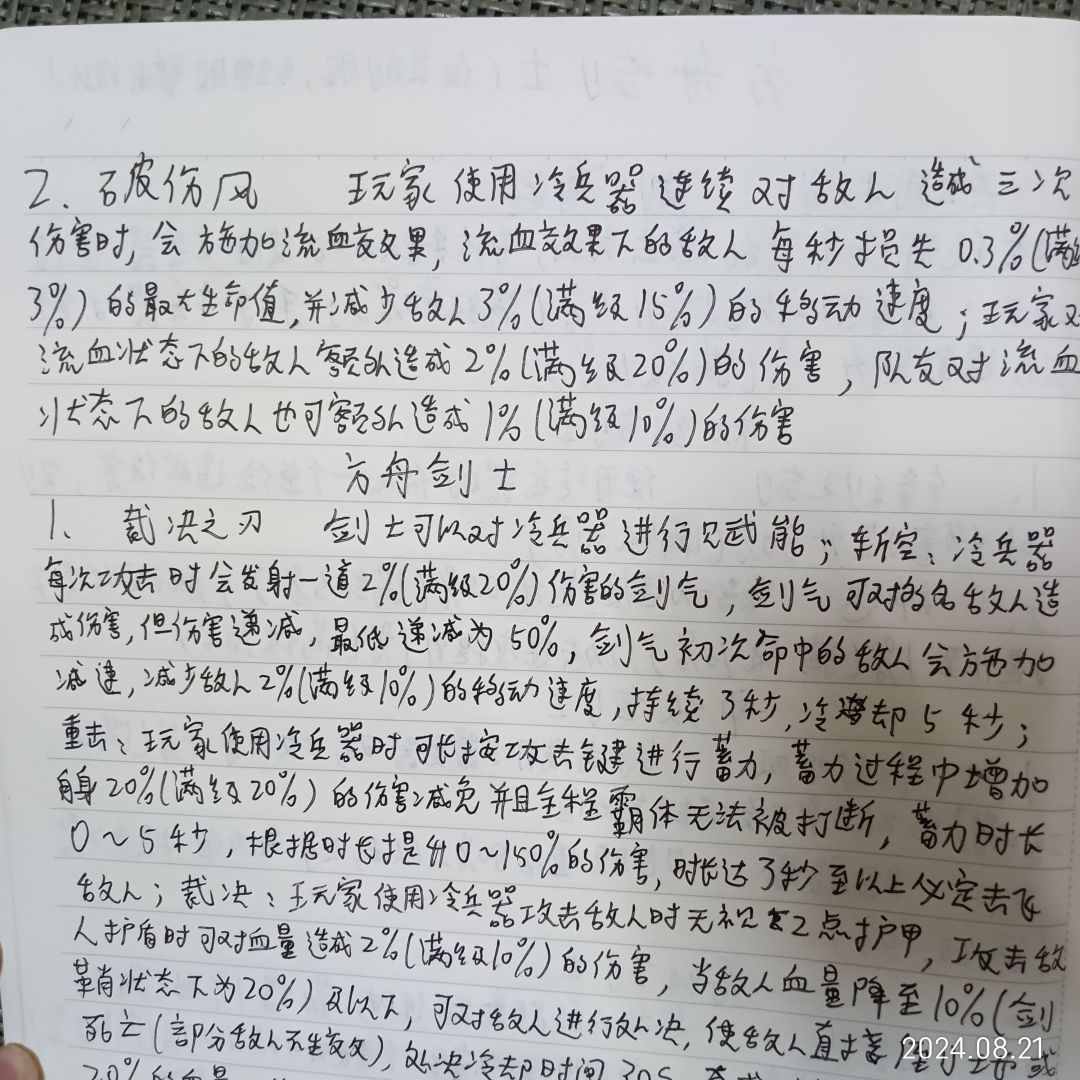 2. 破伤风 玩家使用冷兵器连续对敌人造成三次
伤害时,会施加流血效果,流血效果下的敌人每秒损失0.3%(满级
3%)的最大生命值,并减少敌人3%(满级15%)的移动速度;玩家对
流血状态下的敌人额外造成2%(满级20%)的伤害,队友对流血
状态下的敌人也可额外造成1%(满级10%)的伤害
方舟剑士
1. 裁决之刃 剑士可以对冷兵器进行 武能;斩空:冷兵器
每次攻击时会发射一道2%(满级20%)伤害的剑气,剑气可对多名敌人造
成伤害,但伤害递减,最低递减为50%,剑气初次命中的敌人会施加
减速,减少敌人2%(满级10%)的移动速度,持续3秒,冷却5秒;
重击:玩家使用冷兵器时可长按攻击键进行蓄力,蓄力过程中增加
自身20%(满级20%)的伤害减免并且全程霸体无法被打断,蓄力时长
0~5秒,根据时长提升0~150%的伤害,时长达3秒至以上必定击飞
敌人;裁决:玩家使用冷兵器攻击敌人时无视 2点护甲,攻击敌
人护盾时可对血量造成2%(满级10%)的伤害,当敌人血量降至10%(剑
鞘状态下为20%)及以下,可对敌人进行处决,使敌人直接
死亡(部分敌人不生效),处决冷却时间30s
20%的血量
2024.08.21